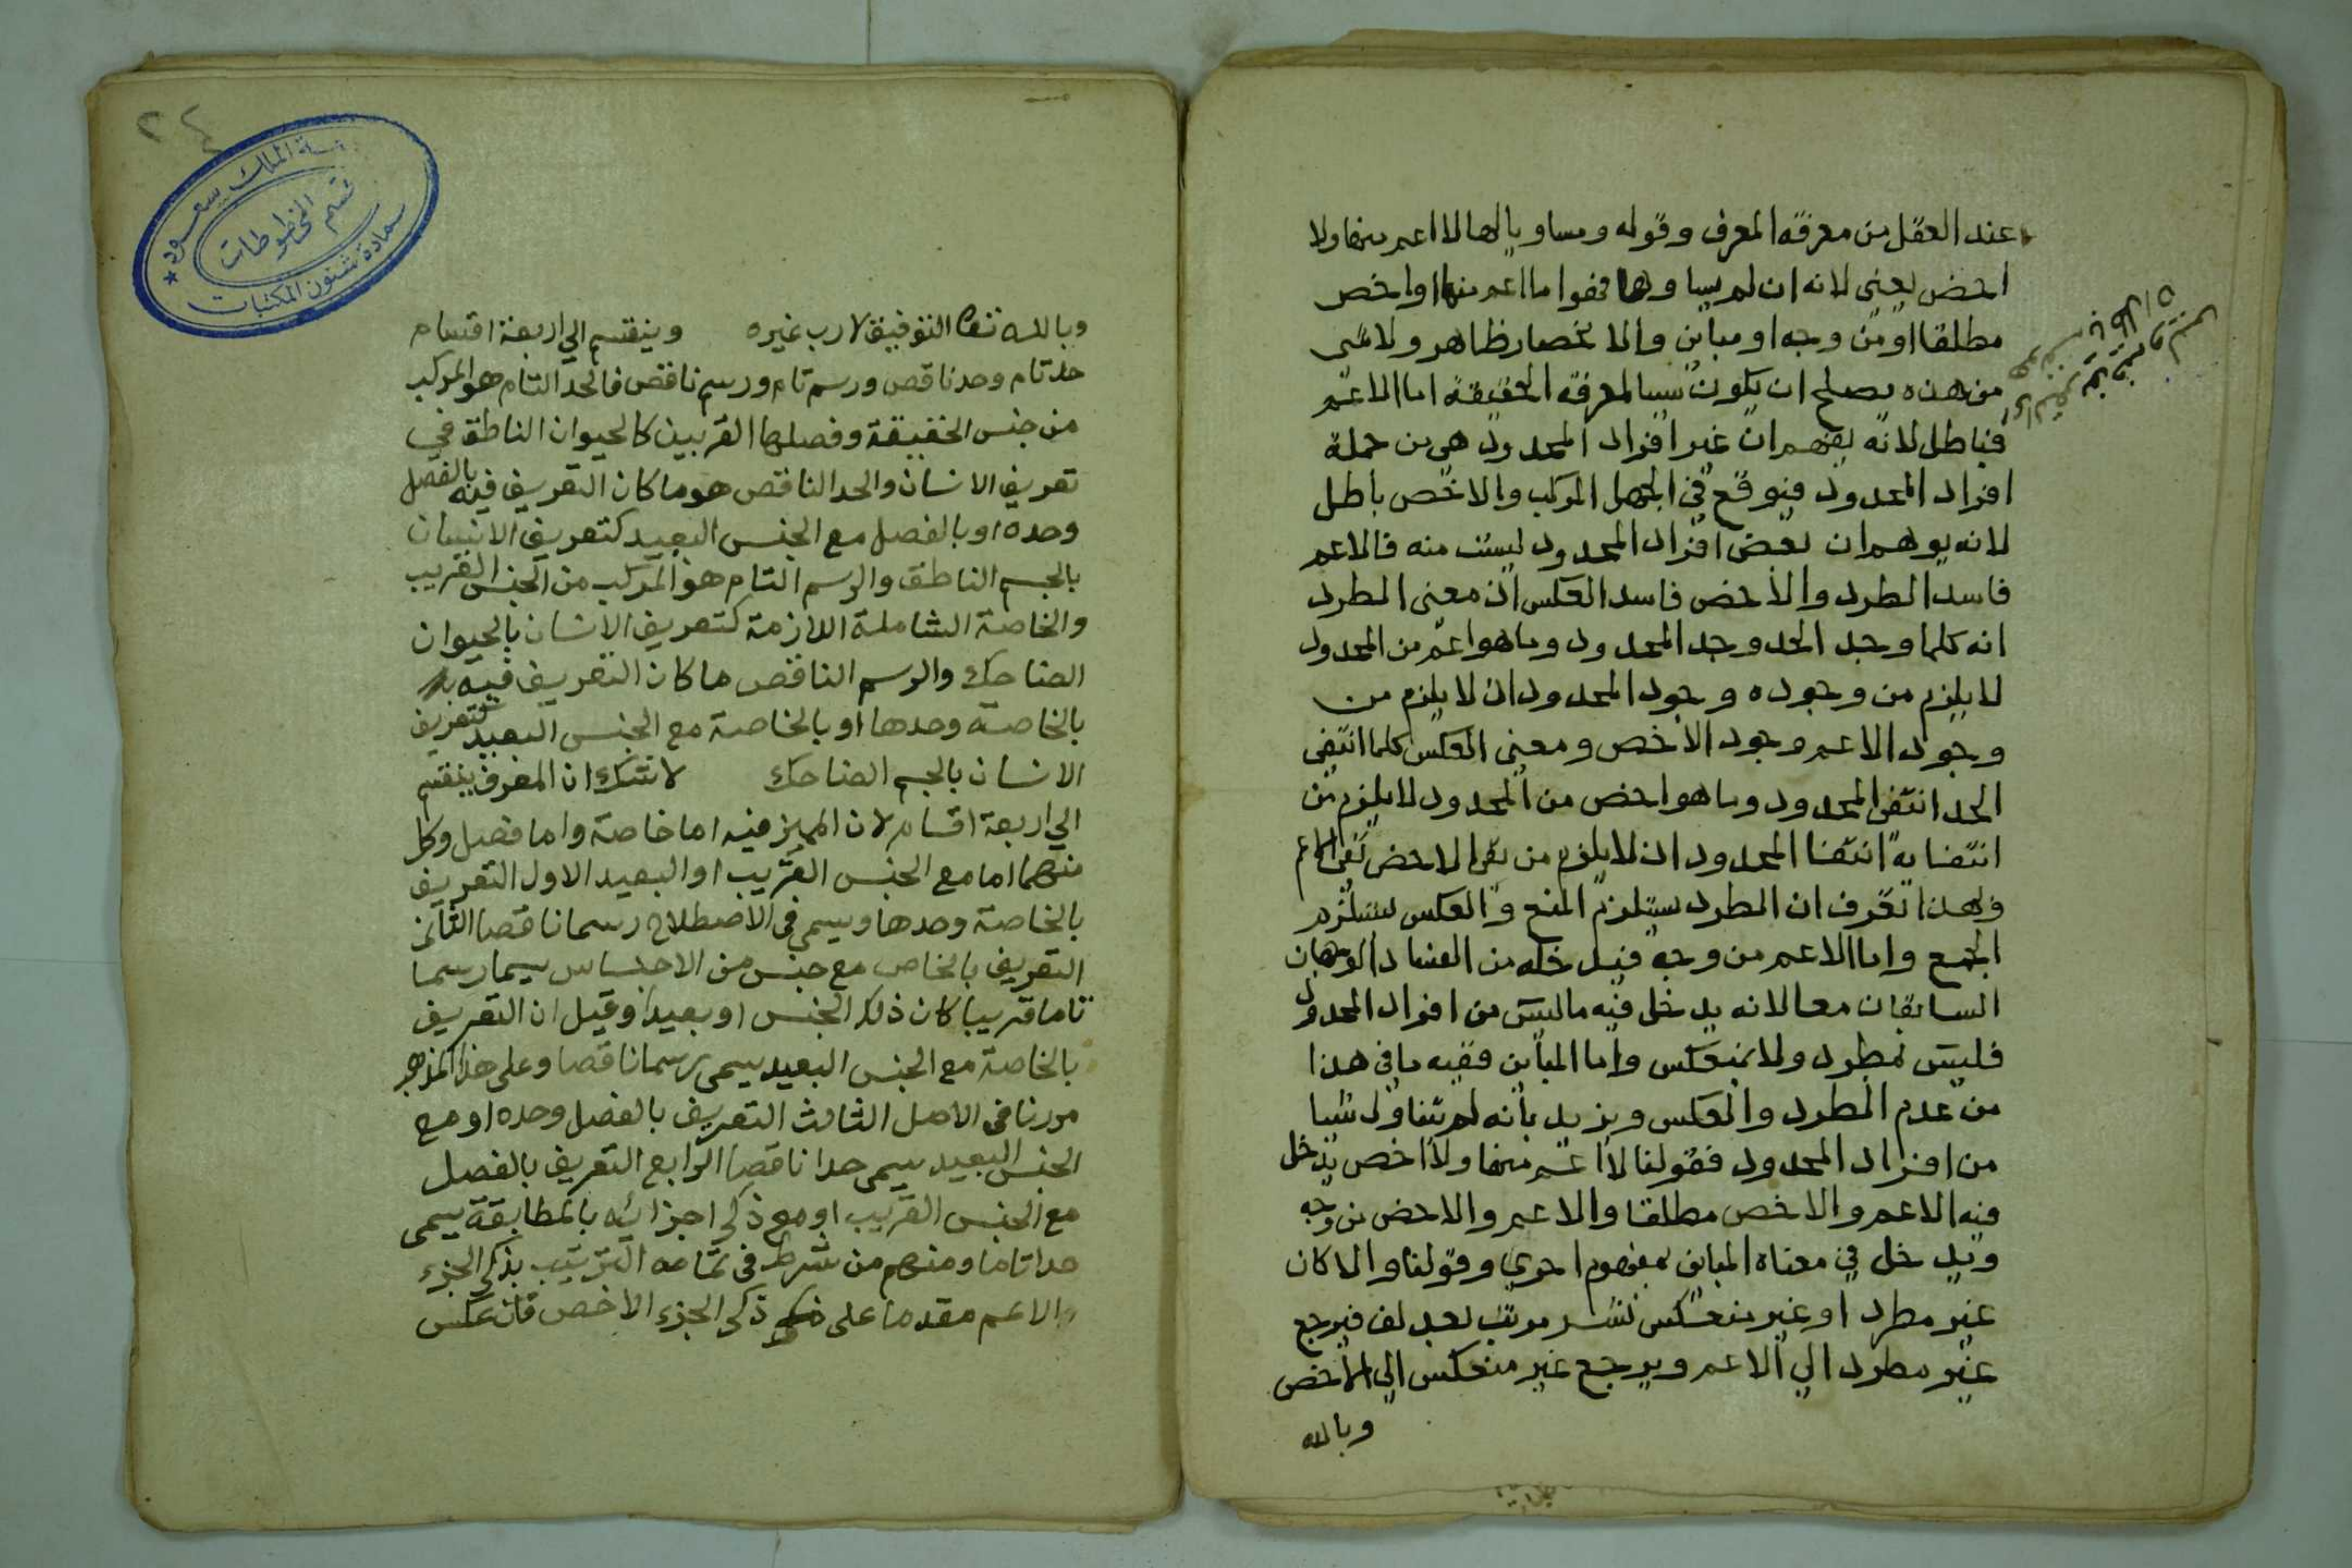 عند العقل من معرفة المعرف وقوله ومساويا لها لا اعم منها ولا
اخص يعني لانه ان لم يساوها فهوا ما اعم منها او اخص
مطلقا او من وجه او مباين والانحصار ظاهر ولا شى
من هذه يصلح ان يكون سببا لمعرفة الحقيقة اما الاعم
فباطل لانه يفهم ان غير افراد المحدود هي من جملة
افراد المحدود فيوقع في الجهل المركب والاخص باطل
لانه يوهم ان بعض افراد المحدود ليست منه فالاعم
فاسد الطرد والأخص فاسد العكس اذ معنى المطرد
انه كلما وجد الحد وجد المحدود وما هو اعم من المحدود
لا يلزم من وجوده وجود المحدود اذ لا يلزم من
وجود الاعم وجود الاخص ومعنى العكس كلما انتفى
الحد انتفى المحدود وما هو اخص من المحدود لا يلزم من
انتفايه انتفا المحدود اذ لا يلزم من نفى الاخص نفى الاعم
وبهذا تعرف ان المطرد يستلزم المنع والعكس يستلزم
الجمع واما الاعم من وجه فيدخله من الفساد الوجهان
السابقان معا لانه يدخل فيه ما ليس من افراد المحدود
فليس بمطرد ولا بمنعكس واما المباين ففيه ما في هذا
من عدم المطرد والعكس ويزيد بأنه لم يتناول شيا
من افراد المحدود فقولنا لا اعم منها ولا اخص يدخل
فيه الاعم والاخص مطلقا والاعم والاخص من وجه
ويدخل في معناه المباين بمفهوم احرى وقولنا والا كان
غير مطرد او غير منعكس نشر مرتب بعد لف فيرجع
غير مطرد الي الاعم ويرجع غير منعكس الي الأخص
وبالله
٢٤
الملك سعود
قسم المخطوطات
عمادة شئون المكتبات
وبالله تعا التوفيق لا رب غيره وينقسم الي اربعة اقسام
حد تام وحد ناقص ورسم تام ورسم ناقص فالحد التام هو المركب
من جنس الحقيقة وفصلها القريبين كالحيوان الناطق في
تعريف الانسان والحد الناقص هو ما كان التعريف فيه بالفصل
وحده او بالفصل مع الجنس البعيد كتعريف الانسان
بالجسم الناطق والرسم التام هو المركب من الجنس القريب
والخاصة الشاملة اللازمة كتعريف الانسان بالحيوان
الضاحك والرسم الناقص ما كان التعريف فيه
بالخاصة وحدها او بالخاصة مع الجنس البعيد كتعريف
الانسان بالجسم الضاحك لا شك ان المعرف ينقسم
الي اربعة اقسام لان المميز فيه اما خاصة واما فصل وكل
منهما اما مع الجنس القريب او البعيد الاول التعريف
بالخاصة وحدها ويسمي في الاصطلاح رسما ناقصا الثاني
التعريف بالخاص مع جنس من الاجناس يسما رسما
تاما قريبا كان ذلك الجنس او بعيدا وقيل ان التعريف
بالخاصة مع الجنس البعيد يسمى رسما ناقصا وعلى هذا المذهب
مررنا في الاصل الثالث التعريف بالفصل وحده او مع
الجنس البعيد يسمى حدا ناقصا الرابع التعريف بالفصل
مع الجنس القريب او مع ذكر اجزائه بالمطابقة يسمى
حدا تاما ومنهم من شرط في تمامه الترتيب بذكر الجزء
الاعم مقدما على ذكر الجزء الاخص فان عكس